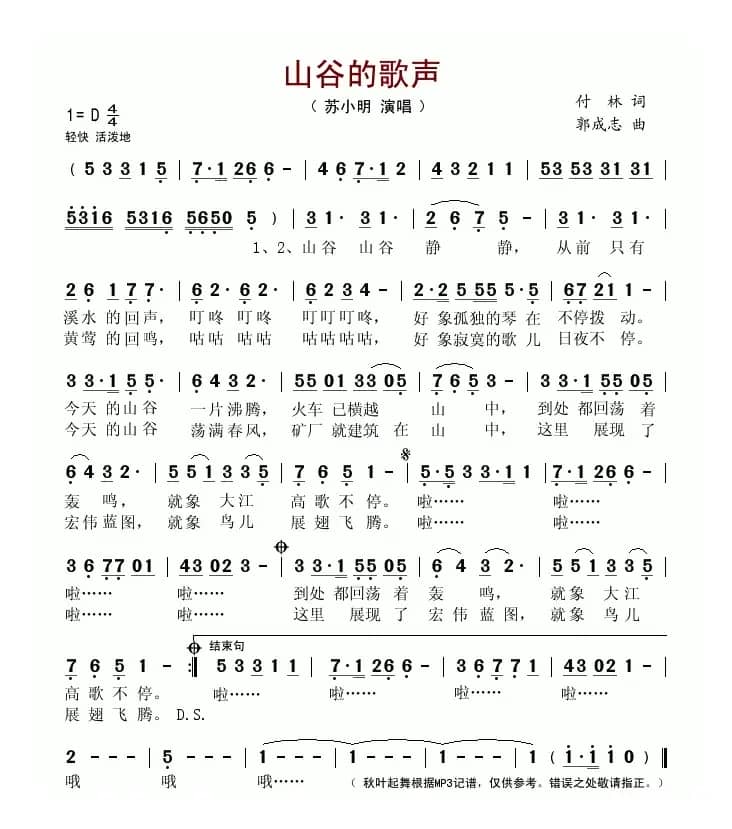 山谷的歌声
（ 苏小明 演唱 ）
1= D 4/4
付 林 词
轻快 活泼地
郭成志 曲
( 5 3 3 1 5 | 7·1 2 6 6 - | 4 6 7·1 2 | 4 3 2 1 1 | 53 53 31 31 |
5316 5316 5650 5 ) | 3 1· 3 1· | 2 6 7 5 - | 3 1· 3 1· |
1、2、山谷 山谷 静 静， 从前 只有
2 6 1 7 7· | 6 2· 6 2· | 6 2 3 4 - | 2·2 5 55 5·5 | 67 21 1 - |
溪水 的回声， 叮咚 叮咚 叮叮叮咚， 好 象孤独的琴 在 不停拨 动。
黄莺 的回鸣， 咕咕 咕咕 咕咕咕咕， 好 象寂寞的歌 儿 日夜不 停。
3 3·1 5 5· | 4 6 3 2· | 55 01 33 05 | 7 6 5 3 - | 3 3·1 55 05 |
今天 的山谷 一片沸腾， 火车 已横越 山 中， 到处 都回荡 着
今天 的山谷 荡满春风， 矿厂 就建筑 在 山 中， 这里 展现 了
6 4 3 2· | 5 5 1 3 3 5 | 7 6 5 1· | 5·5 3 3·1 1 | 7·1 26 6 - |
轰 鸣， 就象 大江 高歌不停。 啦…… 啦……
宏伟蓝图， 就象 鸟儿 展翅飞腾。 啦…… 啦……
3 6 77 01 | 43 02 3 - | 3 3·1 55 05 | 6 4 3 2· | 5 5 1 3 3 5 |
啦…… 啦…… 到处 都回荡 着 轰 鸣， 就象 大江
啦…… 啦…… 这里 展现 了 宏伟 蓝图， 就象 鸟儿
结束句
7 6 5 1· :| 5 3 3 1 1 | 7·1 26 6 - | 3 6 7 7 1 | 43 02 1 - |
高 歌 不 停。 啦…… 啦…… 啦…… 啦……
展 翅 飞 腾。D.S.
2 - - - | 5 - - - | 1 - - - | 1 - - - | 1 ( 1·1 1 0 ‖
哦 哦 哦……
（ 秋叶起舞根据MP3记谱，仅供参考。错误之处敬请指正。）